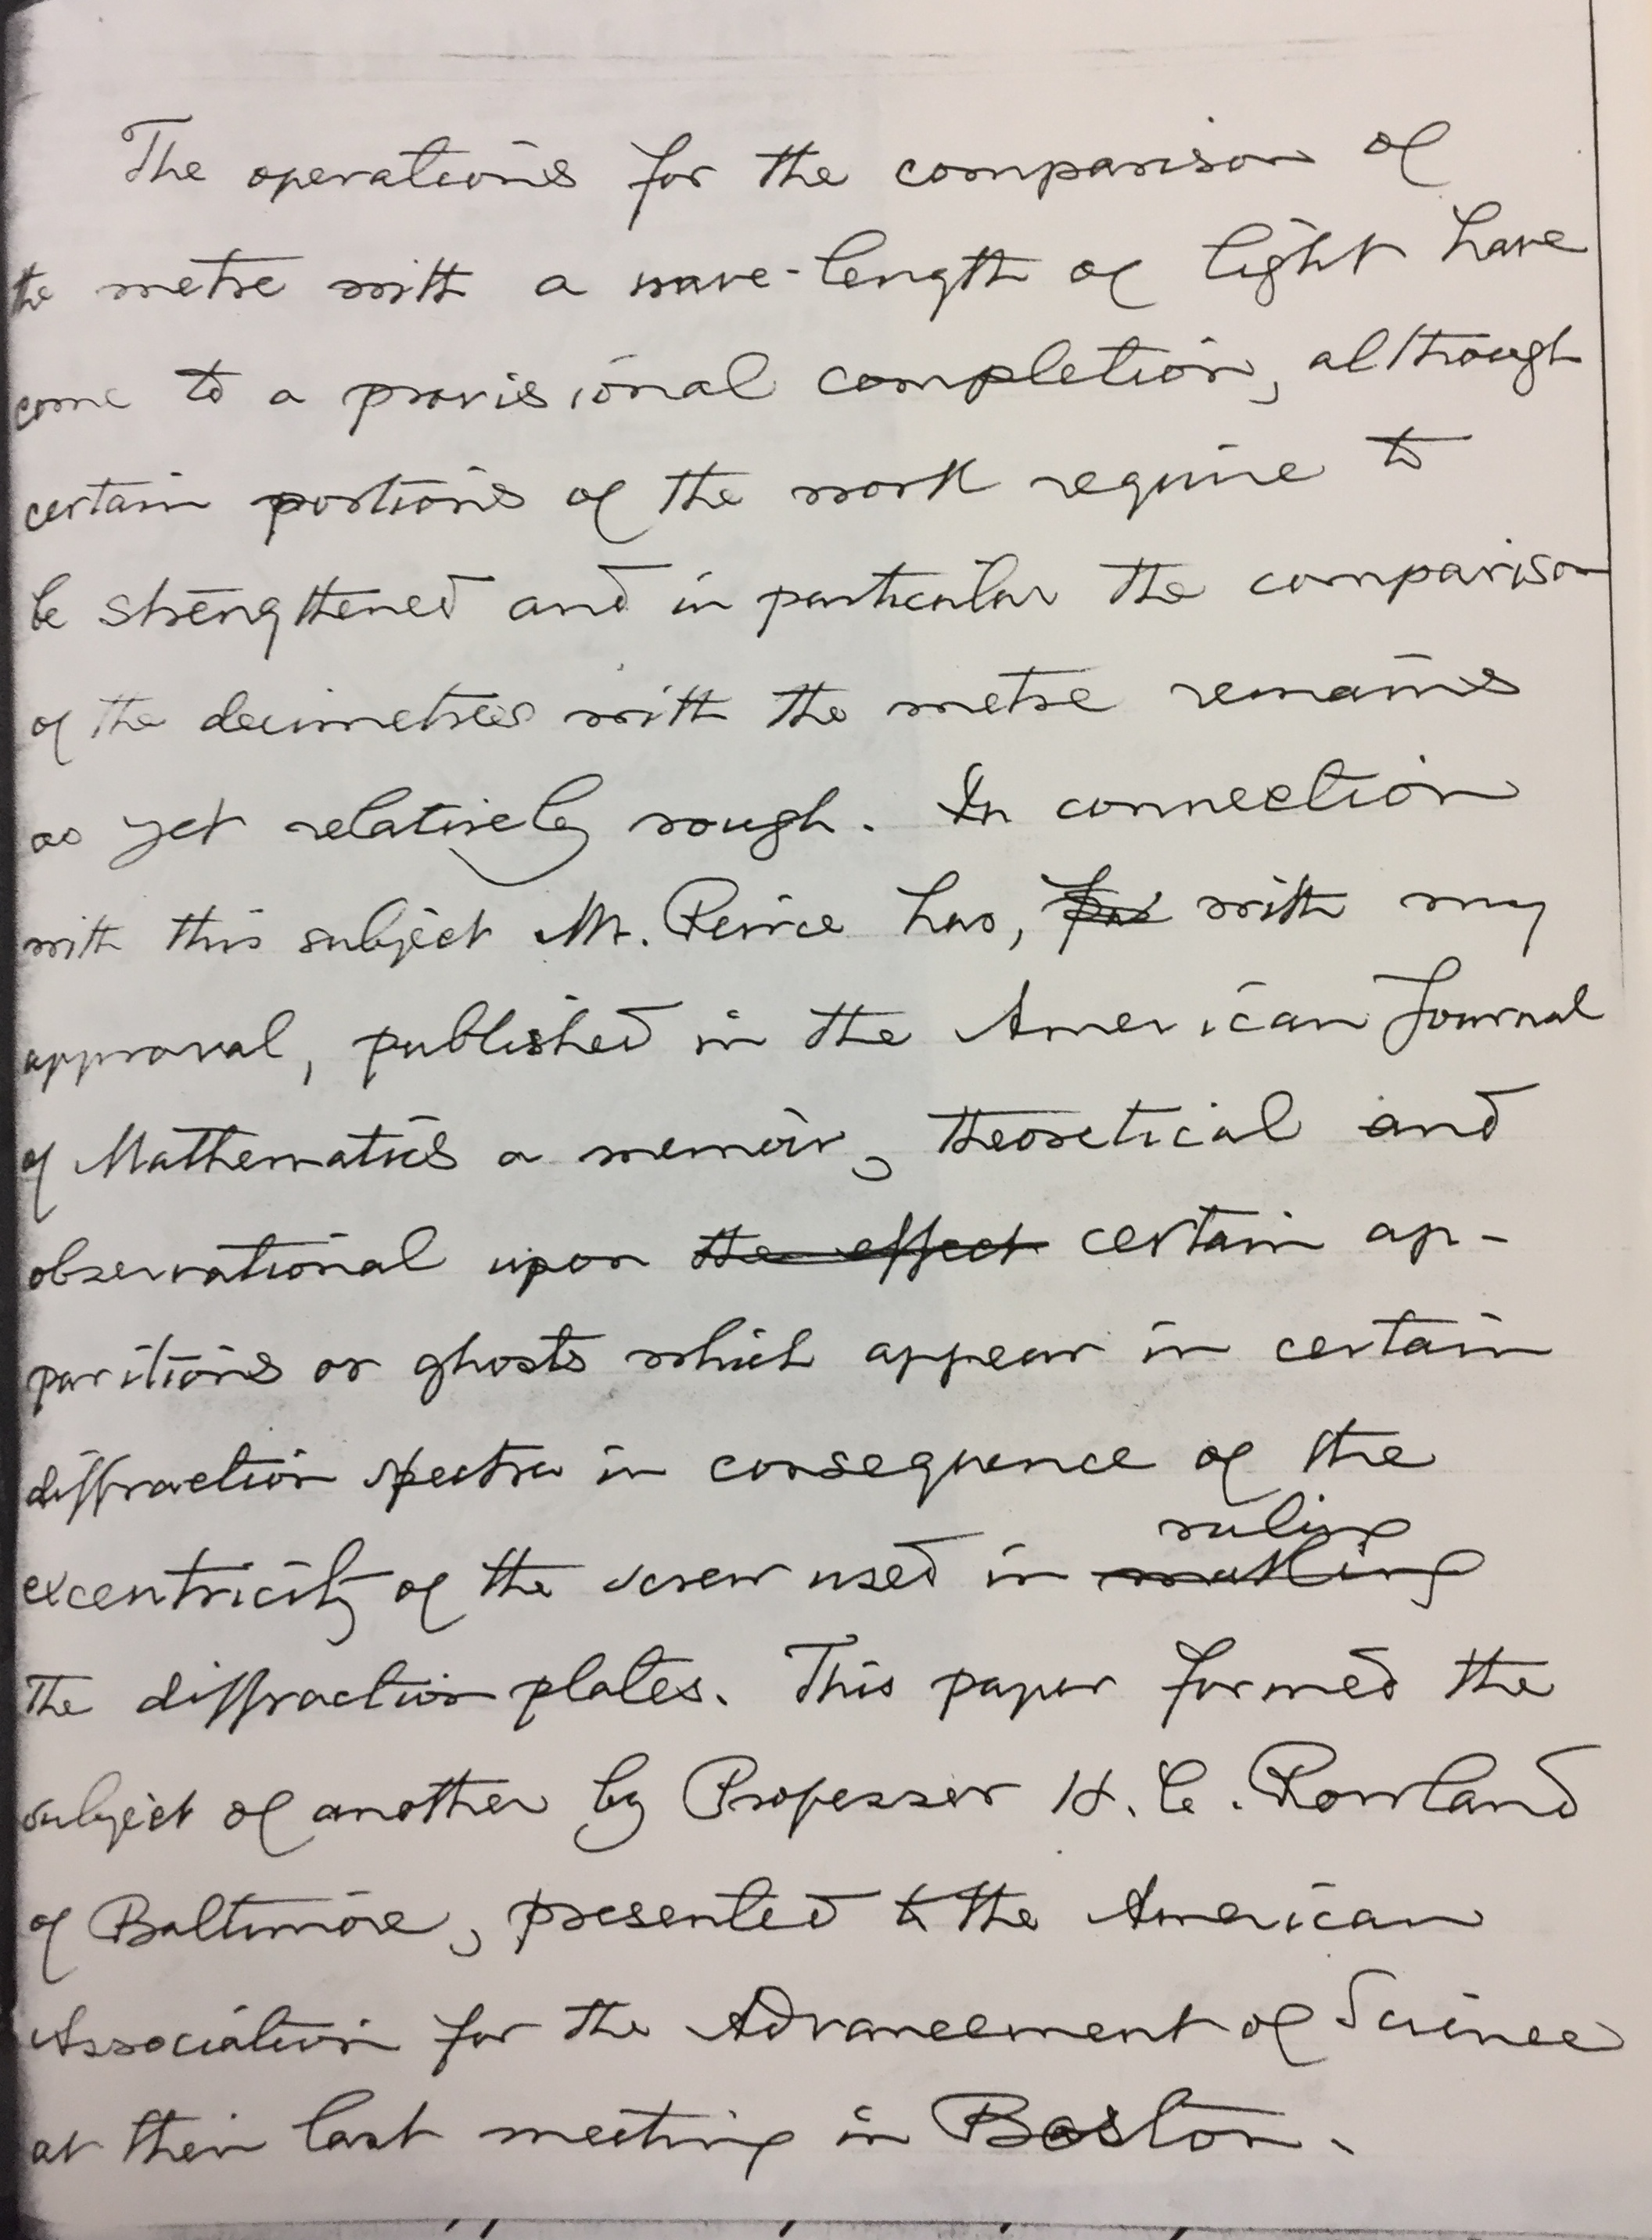 The operations for the comparison of
the metre with a wave-length of light have
come to a provisional completion, although
certain portions of the work require to
be strengthened and in particular the comparison
of the decimetres with the metre remains
as yet relatively rough. In connection
with this subject Mr. Peirce has, with my
approval, published in the American Journal
of Mathematics a memoir, theoretical and
observational upon the effect certain ap-
paritions or ghosts which appear in certain
diffraction spectra in consequence of the
ruling
excentricity of the screw used in making
the diffraction plates. This paper formed the
subject of another by Professor H. C. Rowland
of Baltimore, presented to the American
Association for the Advancement of Science
at their last meeting in Boston.